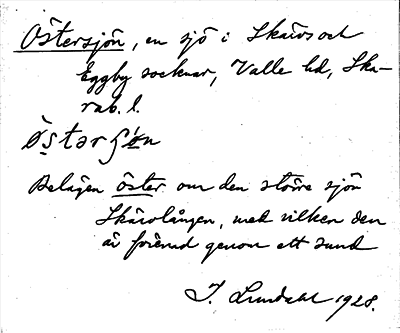 Östersjön, en sjö i Skärvs och
Eggby socknar, Valle hd, Ska-
rab. l.
östarʃön
Belägen öster om den större sjön
Skärvlången, med vilken den
är förenad genom ett sund
I. Lundahl 1928.